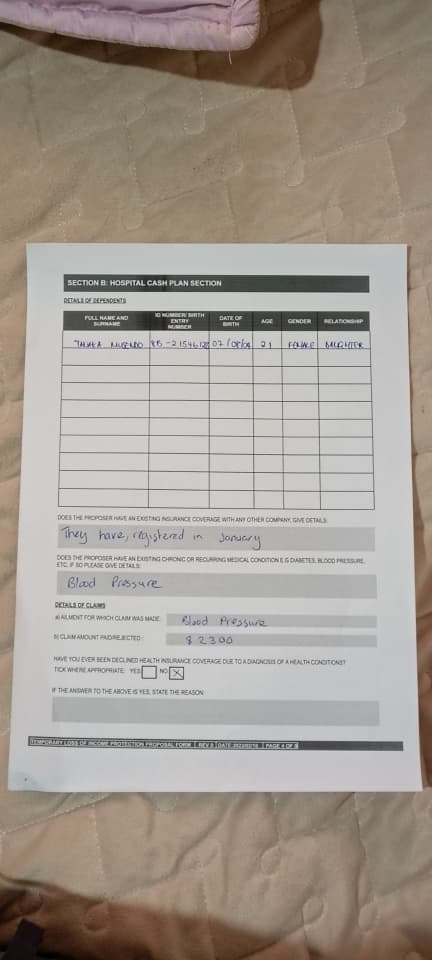 SECTION B: HOSPITAL CASH PLAN SECTION
DETAILS OF DEPENDENTS
FULL NAME AND SURNAME ID NUMBER/ BIRTH ENTRY NUMBER DATE OF BIRTH AGE GENDER RELATIONSHIP
07/08/04 21 FEMALE DAUGHTER
DOES THE PROPOSER HAVE AN EXISTING INSURANCE COVERAGE WITH ANY OTHER COMPANY, GIVE DETAILS:
They have, registered in January
DOES THE PROPOSER HAVE AN EXISTING CHRONIC OR RECURRING MEDICAL CONDITION E.G DIABETES, BLOOD PRESSURE,
ETC, IF SO PLEASE GIVE DETAILS:
Blood Pressure
DETAILS OF CLAIMS
a) AILMENT FOR WHICH CLAIM WAS MADE: Blood Pressure
b) CLAIM AMOUNT PAID/REJECTED : $ 2300
HAVE YOU EVER BEEN DECLINED HEALTH INSURANCE COVERAGE DUE TO A DIAGNOSIS OF A HEALTH CONDITIONS?
TICK WHERE APPROPRIATE: YES NO X
IF THE ANSWER TO THE ABOVE IS YES, STATE THE REASON:
TEMPORARY LOSS OF INCOME PROTECTION PROPOSAL FORM | REV 0 | DATE:2023/02/10 | PAGE 4 OF